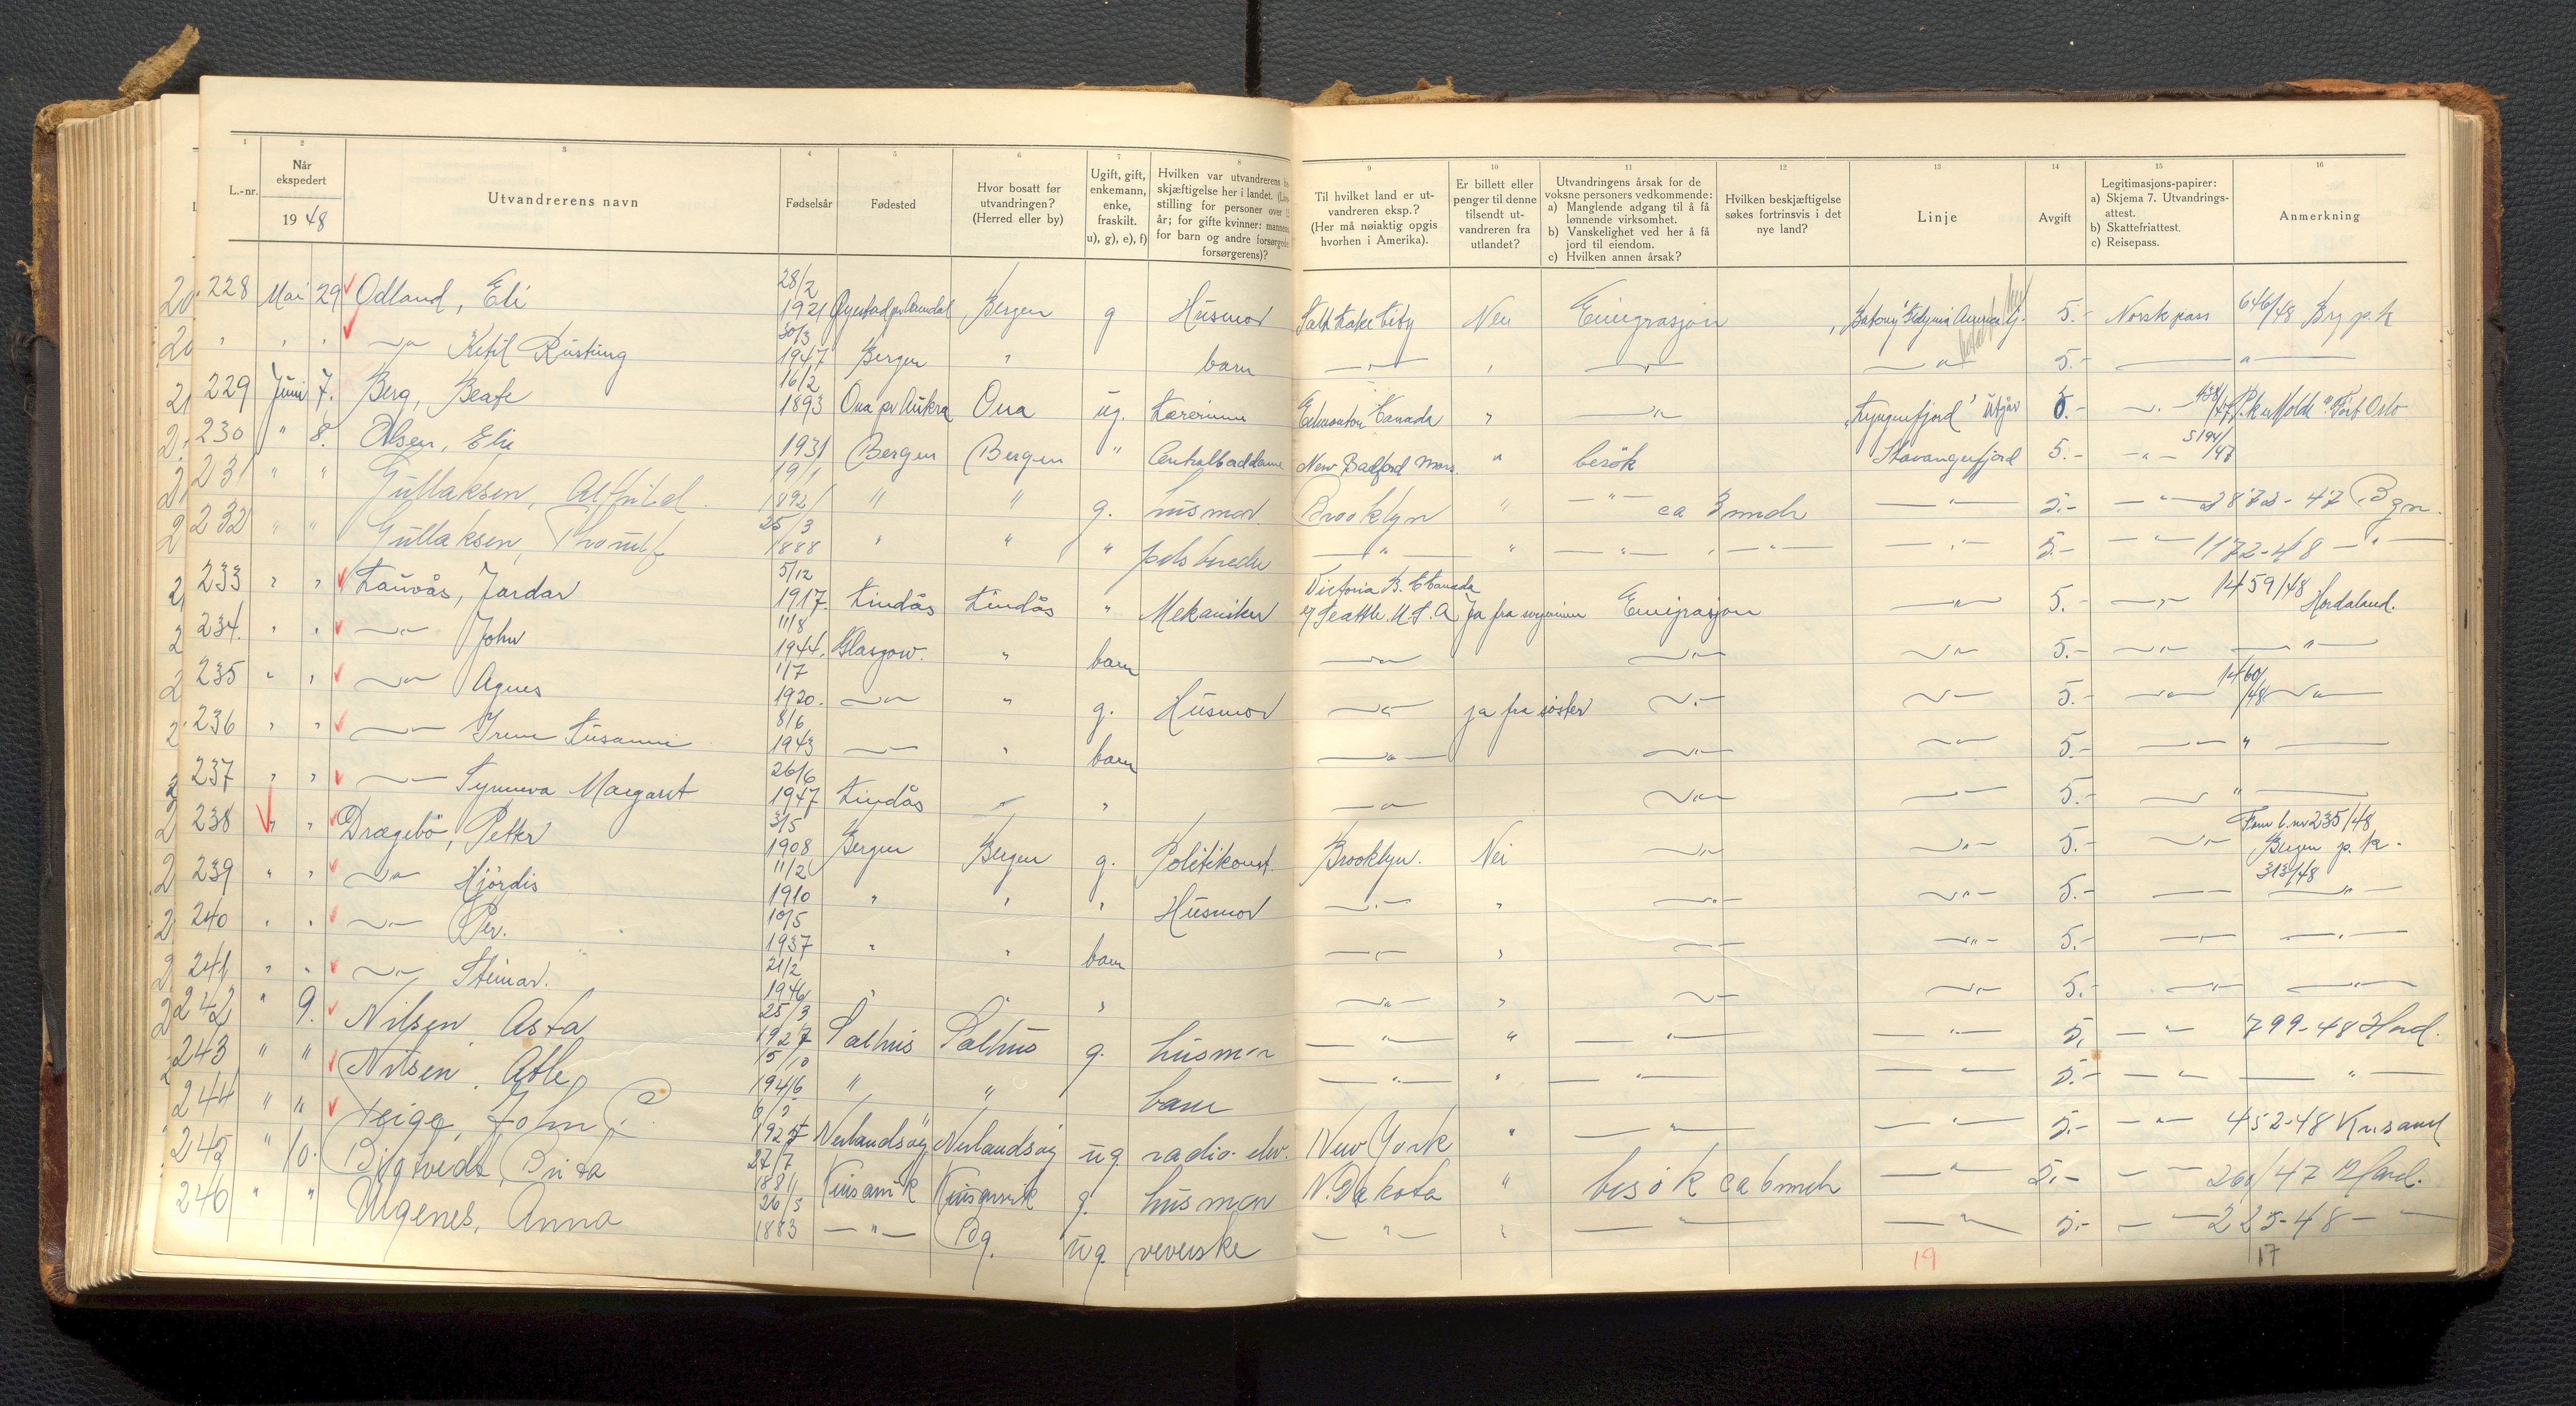 1 2 3 4 5 6 7 8 9 10 11 12 13 14 15 16
L.-nr.
Når ekspedert
1948
Utvandrerens navn
Fødselsår
Fødested
Hvor bosatt før utvandringen? (Herred eller by)
Ugift, gift, enkemann, enke, fraskilt. u), g), e), f)
Hvilken var utvandrerens
skjæftigelse her i landet.
stilling for personer over
år; for gifte kvinner:
for barn og andre
forsørgerens)?
Til hvilket land er utvandreren eksp.? (Her må nøiaktig opgis hvorhen i Amerika).
Er billett eller penger til denne tilsendt utvandreren fra utlandet?
Utvandringens årsak for de voksne personers vedkommende:
a) Manglende adgang til å få lønnende virksomhet.
b) Vanskelighet ved her å få jord til eiendom.
c) Hvilken annen årsak?
Hvilken beskjæftigelse søkes fortrinsvis i det nye land?
Linje
Avgift
Legitimasjons-papirer:
a) Skjema 7. Utvandrings-attest.
b) Skattefriattest.
c) Reisepass.
Anmerkning
228 Mai 29 Odland, Eli 28/2 1921 Bergen g Husmor Salt Lake City Nei Emigrasjon 5.- Norsk pass 646/48 Brg p.k
" " " —"— Ketil Rustung 30/3 1947 Bergen " barn —"— " —"— —"— 5.- —"—
229 Juni 7. Berg, Beate 16/2 1893 Ona pr Aukra Ona ug. Lærerinne Edmonton Canada " —"— "Lyngenfjord" 5.- —"—
230 " 8. Olsen, Elie 1931 Bergen Bergen " New Bedford Mass. " besök Stavangerfjord 5.- —"— 5194/47
231 " " Gullaksen, Alfhild. 19/1 1892 " " g. husmor. Brooklyn " —"— ca 3 mndr —"— 5.- —"— 2873-47 Bgn.
232 " " Gullaksen, Thoralf 25/3 1888 " " " —"— " —"— —"— —"— 5.- —"— 1172-48 —"—
233 " " Lauvås, Jardar 5/12 1917. Lindås Lindås " Mekaniker Victoria B.C Canada Seattle. U.S.A Ja fra Emigrasjon —"— 5.- —"— 1459/48 Hordaland.
234. " " —"— John 11/8 1944. Glasgow. " barn —"— —"— —"— 5.- —"— —"—
235 " " —"— Agnes 1/7 1920. —"— " g. Husmor —"— ja fra søster —"— —"— 5.- —"— 1460/48 —"—
236 " " —"— Irene Susanne 8/6 1943 —"— " barn —"— —"— —"— 5.- —"— —"—
237 " " —"— Synneva Margaret 26/6 1947 Lindås —"— " —"— —"— —"— 5.- —"— —"—
238 " " Drægebö, Petter 3/5 1908 Bergen Bergen g. Politikonst. Brooklyn. Nei —"— —"— 5.- —"— l.nr 235/48 Bergen p.k. 313/48
239 " " —"— Hjördis 11/2 1910 " " " Husmor —"— " —"— —"— 5.- —"— —"—
240 " " —"— Per. 10/5 1937 " " barn —"— " —"— —"— 5.- —"— —"—
241 " " —"— Steinar. 21/2 1946 " " " —"— " —"— —"— 5.- —"— —"—
242 " 9. Nilsen Asta 25/3 1927 Salhus Salhus g. husmor —"— " —"— —"— 5. —"— 799-48 Hord.
243 " " Nilsen, Atle 15/10 1946 " " barn —"— " —"— —"— 5.- —"— —"—
244 " " Teige, John 1927 Nerlandsöy Nerlandsöy ug radio. New York " —"— —"— 5.- —"— 452-48 Kr.sand
245 " 10. Brita 27/7 1881 g. husmor N. Dakota " besök ca 6 mndr —"— 5.- —"— 260/47 Hord.
246 " " Anna 26/5 1883 —"— Bg. ug. veverske —"— " —"— —"— 5.- —"— 225-48 —"—
19
17